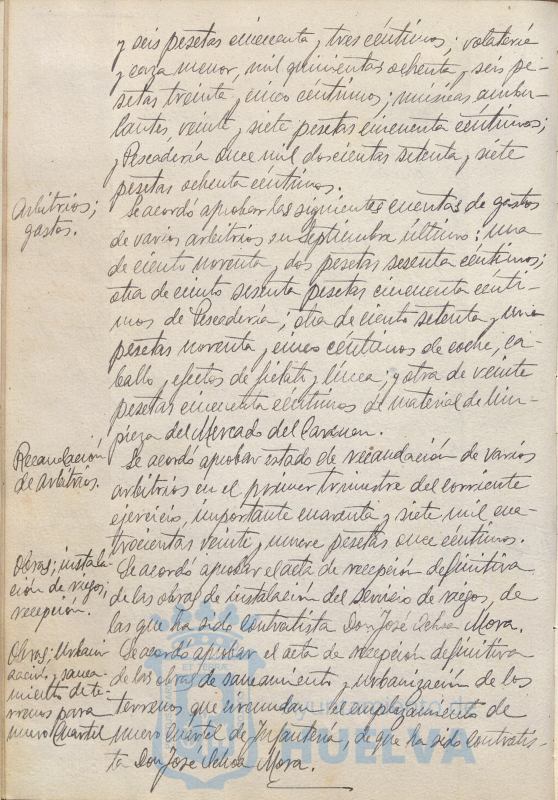 y seis pesetas cincuenta y tres céntimos; volatería
y caza menor, mil quinientas ochenta y seis pe-
setas treinta y cinco céntimos; músicas ambu-
lantes, veinte y siete pesetas cincuenta céntimos;
y Pescadería once mil doscientas setenta y siete
pesetas ochenta céntimos.
Arbitrios;
gastos.
Se acordó aprobar las siguientes cuentas de gastos
de varios arbitrios en Septiembre último: una
de ciento noventa y dos pesetas sesenta céntimos;
otra de ciento sesenta pesetas cincuenta cénti-
mos de Pescadería; otra de ciento setenta y una
pesetas noventa y cinco céntimos de coche, ca-
ballo y efectos de fielato y línea; y otra de veinte
pesetas cincuenta céntimos de material de lim-
pieza del Mercado del Carmen.
Recaudación
de arbitrios.
Se acordó aprobar estado de recaudación de varios
arbitrios en el primer trimestre del corriente
ejercicio, importante cuarenta y siete mil cua-
trocientas veinte y nueve pesetas once céntimos.
Obras; instala-
ción de riegos;
recepción.
Se acordó aprobar el acta de recepción definitiva
de las obras de instalación del servicio de riegos, de
las que ha sido contratista Don José Ochoa Mora.
Obras; urbani-
zación y sanea-
miento de te-
rrenos para
nuevo Cuartel
Se acordó aprobar el acta de recepción definitiva
de las obras de saneamiento y urbanización de los
terrenos que circundan el emplazamiento de
nuevo Cuartel de Infantería, de que ha sido contratis-
ta Don José Ochoa Mora.
ayuntamiento de
HUELVA